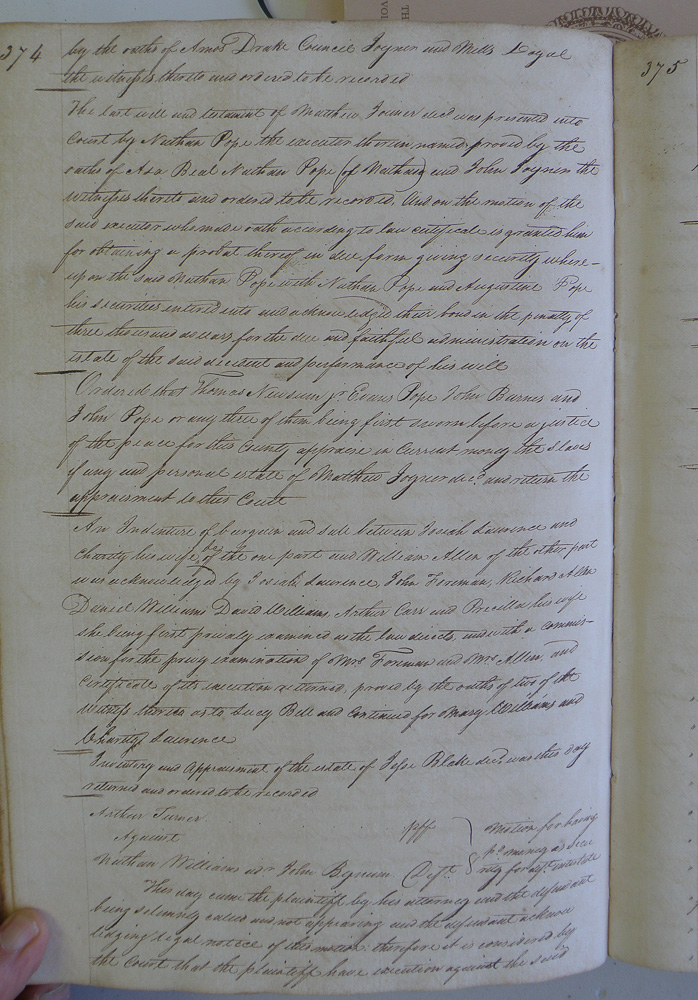 374
by the oaths of Amos Drake Council Joyner and Mills Logal
the witnesses thereto and ordered to be recorded
The last will and testament of Mathew Joiner decd was presented into
Court by Nathan Pope the executor therein named, proved by the
oaths of Asa Beal Nathan Pope (of Nathan) and John Joyner the
witnesses thereto and ordered to be recorded. And on the motion of the
said executor who made oath according to law certificate is granted him
for obtaining a probat thereof in due form giving security where-
upon the said Nathan Pope with Nathan Pope and Augustine Pope
his securities entered into and acknowledged their bond in the penalty of
three thousand dollars for the due and faithful administration on the
estate of the said decedent and performance of his will
Ordered that Thomas Newsum jr Evans Pope John Barnes and
John Pope or any three of them being first sworn before a justice
of the peace for this County appraise in Current money the slaves
if any and personal estate of Matthew Joyner decd. and return the
appraisment to this Court
An Indenture of bargain and sale between Josiah Laurence and
Charity his wife &c of the one part and William Allen of the other part
was acknowledged by Josiah Laurence, John Foreman, Richard Allen
Daniel Williams David Williams, Arthur Carr and Precilla his wife
she being first privaly examined as the law directs, and with a commis-
sion for the privy examination of Mrs Foreman and Mrs Allen, and
Certificate of its execution returned, proved by the oaths of two of the
witness thereto as to Lucy Bell and Continued for Mary Williams and
Charity Laurence
Inventory and Appraisment of the estate of Jesse Blake decd. was this day
returned and ordered to be recorded
Arthur Turner plff
Against
Nathan Williams adr John Bynum Deft.
Motion for being
pd. money as secu
rity for intestate
This day came the plaintiff by his attorney and the defendant
being solemnly called and not appearing and the defendant acknow
ledging legal notice of this motion: therefore it is considered by
the Court that the plaintiff have execution against the said
375